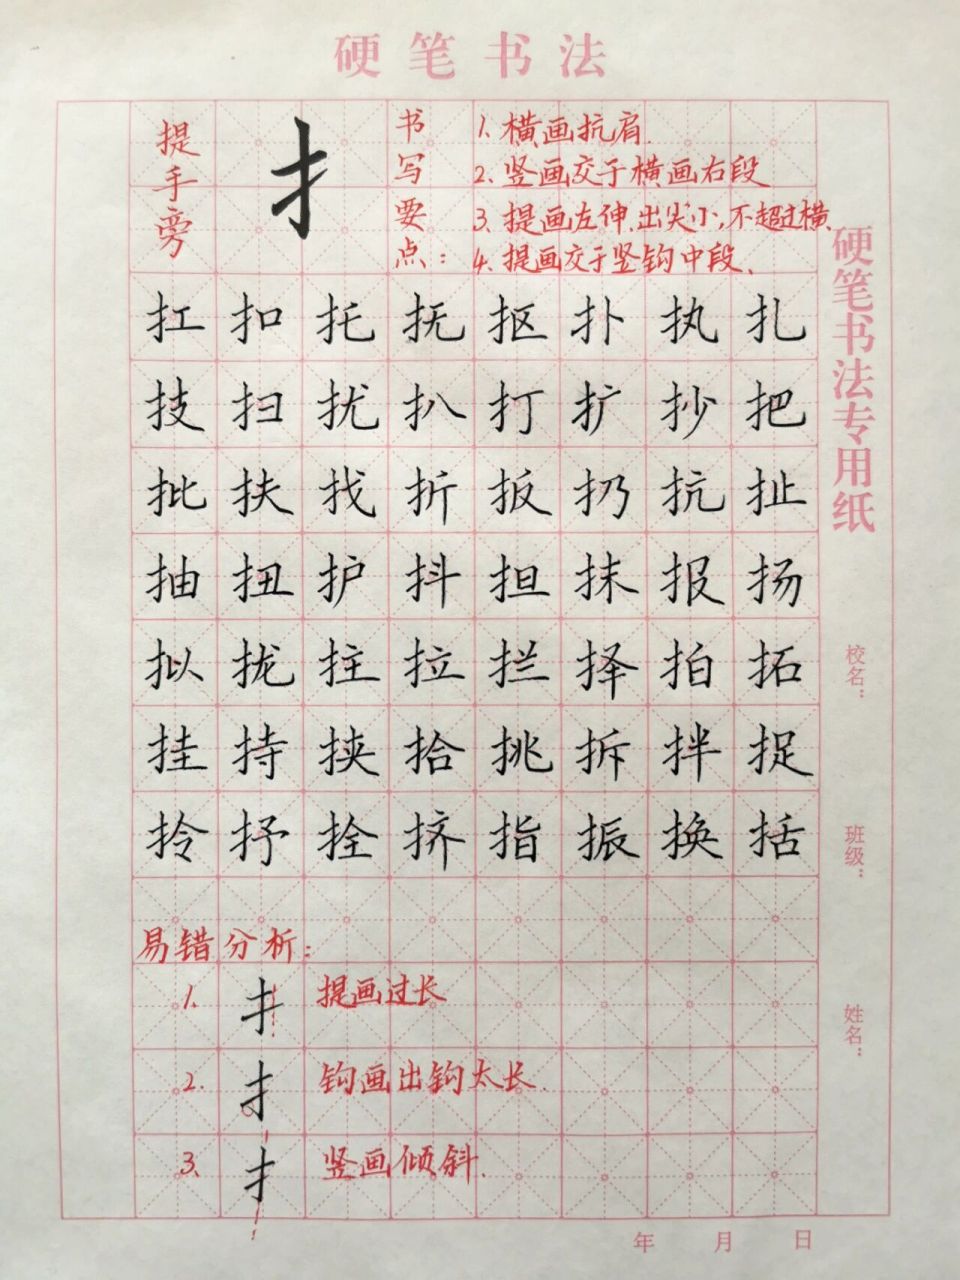 硬笔书法
提手旁
扌
书写要点：
1. 横画抗肩.
2. 竖画交于横画右段
3. 提画左伸.出尖小,不超过横.
4. 提画交于竖钩中段.
扛扣托抚抠扑执扎
技扫扰扒打扩抄把
批扶找折扳扔抗扯
抽扭护抖担抹报扬
拟拢拄拉拦择拍拓
挂持挟拾挑拆拌捉
拎抒拴挤指振换括
易错分析：
1. 扌 提画过长
2. 扌 钩画出钩太长.
3. 扌 竖画倾斜.
硬笔书法专用纸
校名：
班级：
姓名：
年 月 日